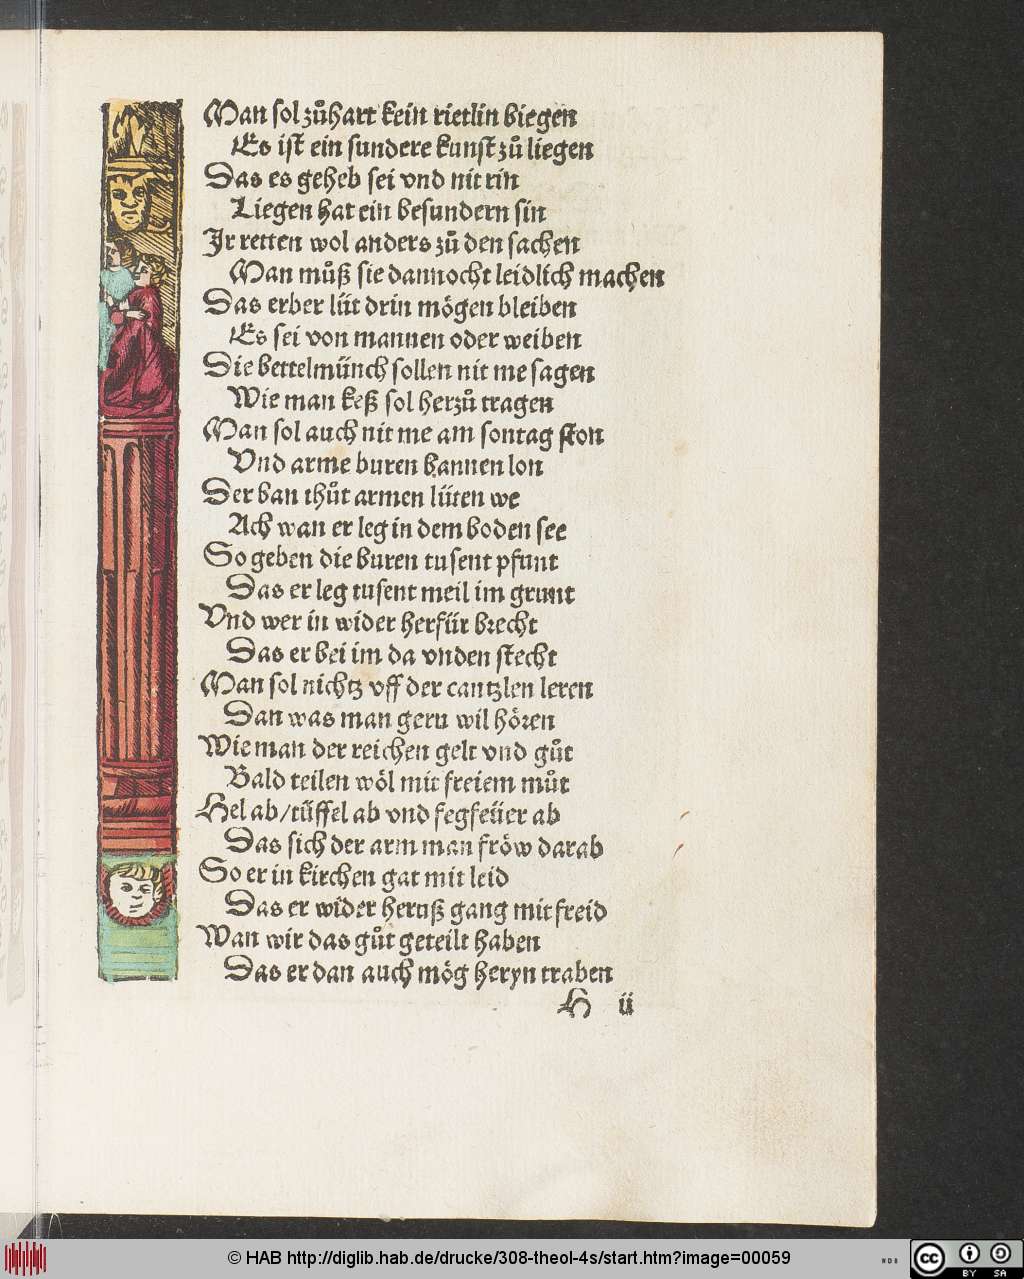 Man sol zůhart kein rietlin biegen
Es ist ein sundere kunst zů liegen
Das es geheb sei vnd nit rin
Liegen hat ein besundern sin
Ir retten wol anders zů den sachen
Man můß sie dannocht leidlich machen
Das erber lüt drin mögen bleiben
Es sei von mannen oder weiben
Die bettelmünch sollen nit me sagen
Wie man keß sol herzů tragen
Man sol auch nit me am sontag ston
Vnd arme buren bannen lon
Der ban thůt armen lüten we
Ach wan er leg in dem boden see
So geben die buren tusent pfunt
Das er leg tusent meil im grunt
Vnd wer in wider herfür brecht
Das er bei im da vnden stecht
Man sol nichtz vff der cantzlen leren
Dan was man gern wil hören
Wie man der reichen gelt vnd gůt
Bald teilen wöl mit freiem můt
Hel ab/tüffel ab vnd fegfeüer ab
Das sich der arm man fröw darab
So er in kirchen gat mit leid
Das er wider heruß gang mit freid
Wan wir das gůt geteilt haben
Das er dan auch mög heryn traben
H ii
© HAB http://diglib.hab.de/drucke/308-theol-4s/start.htm?image=00059
cc BY SA